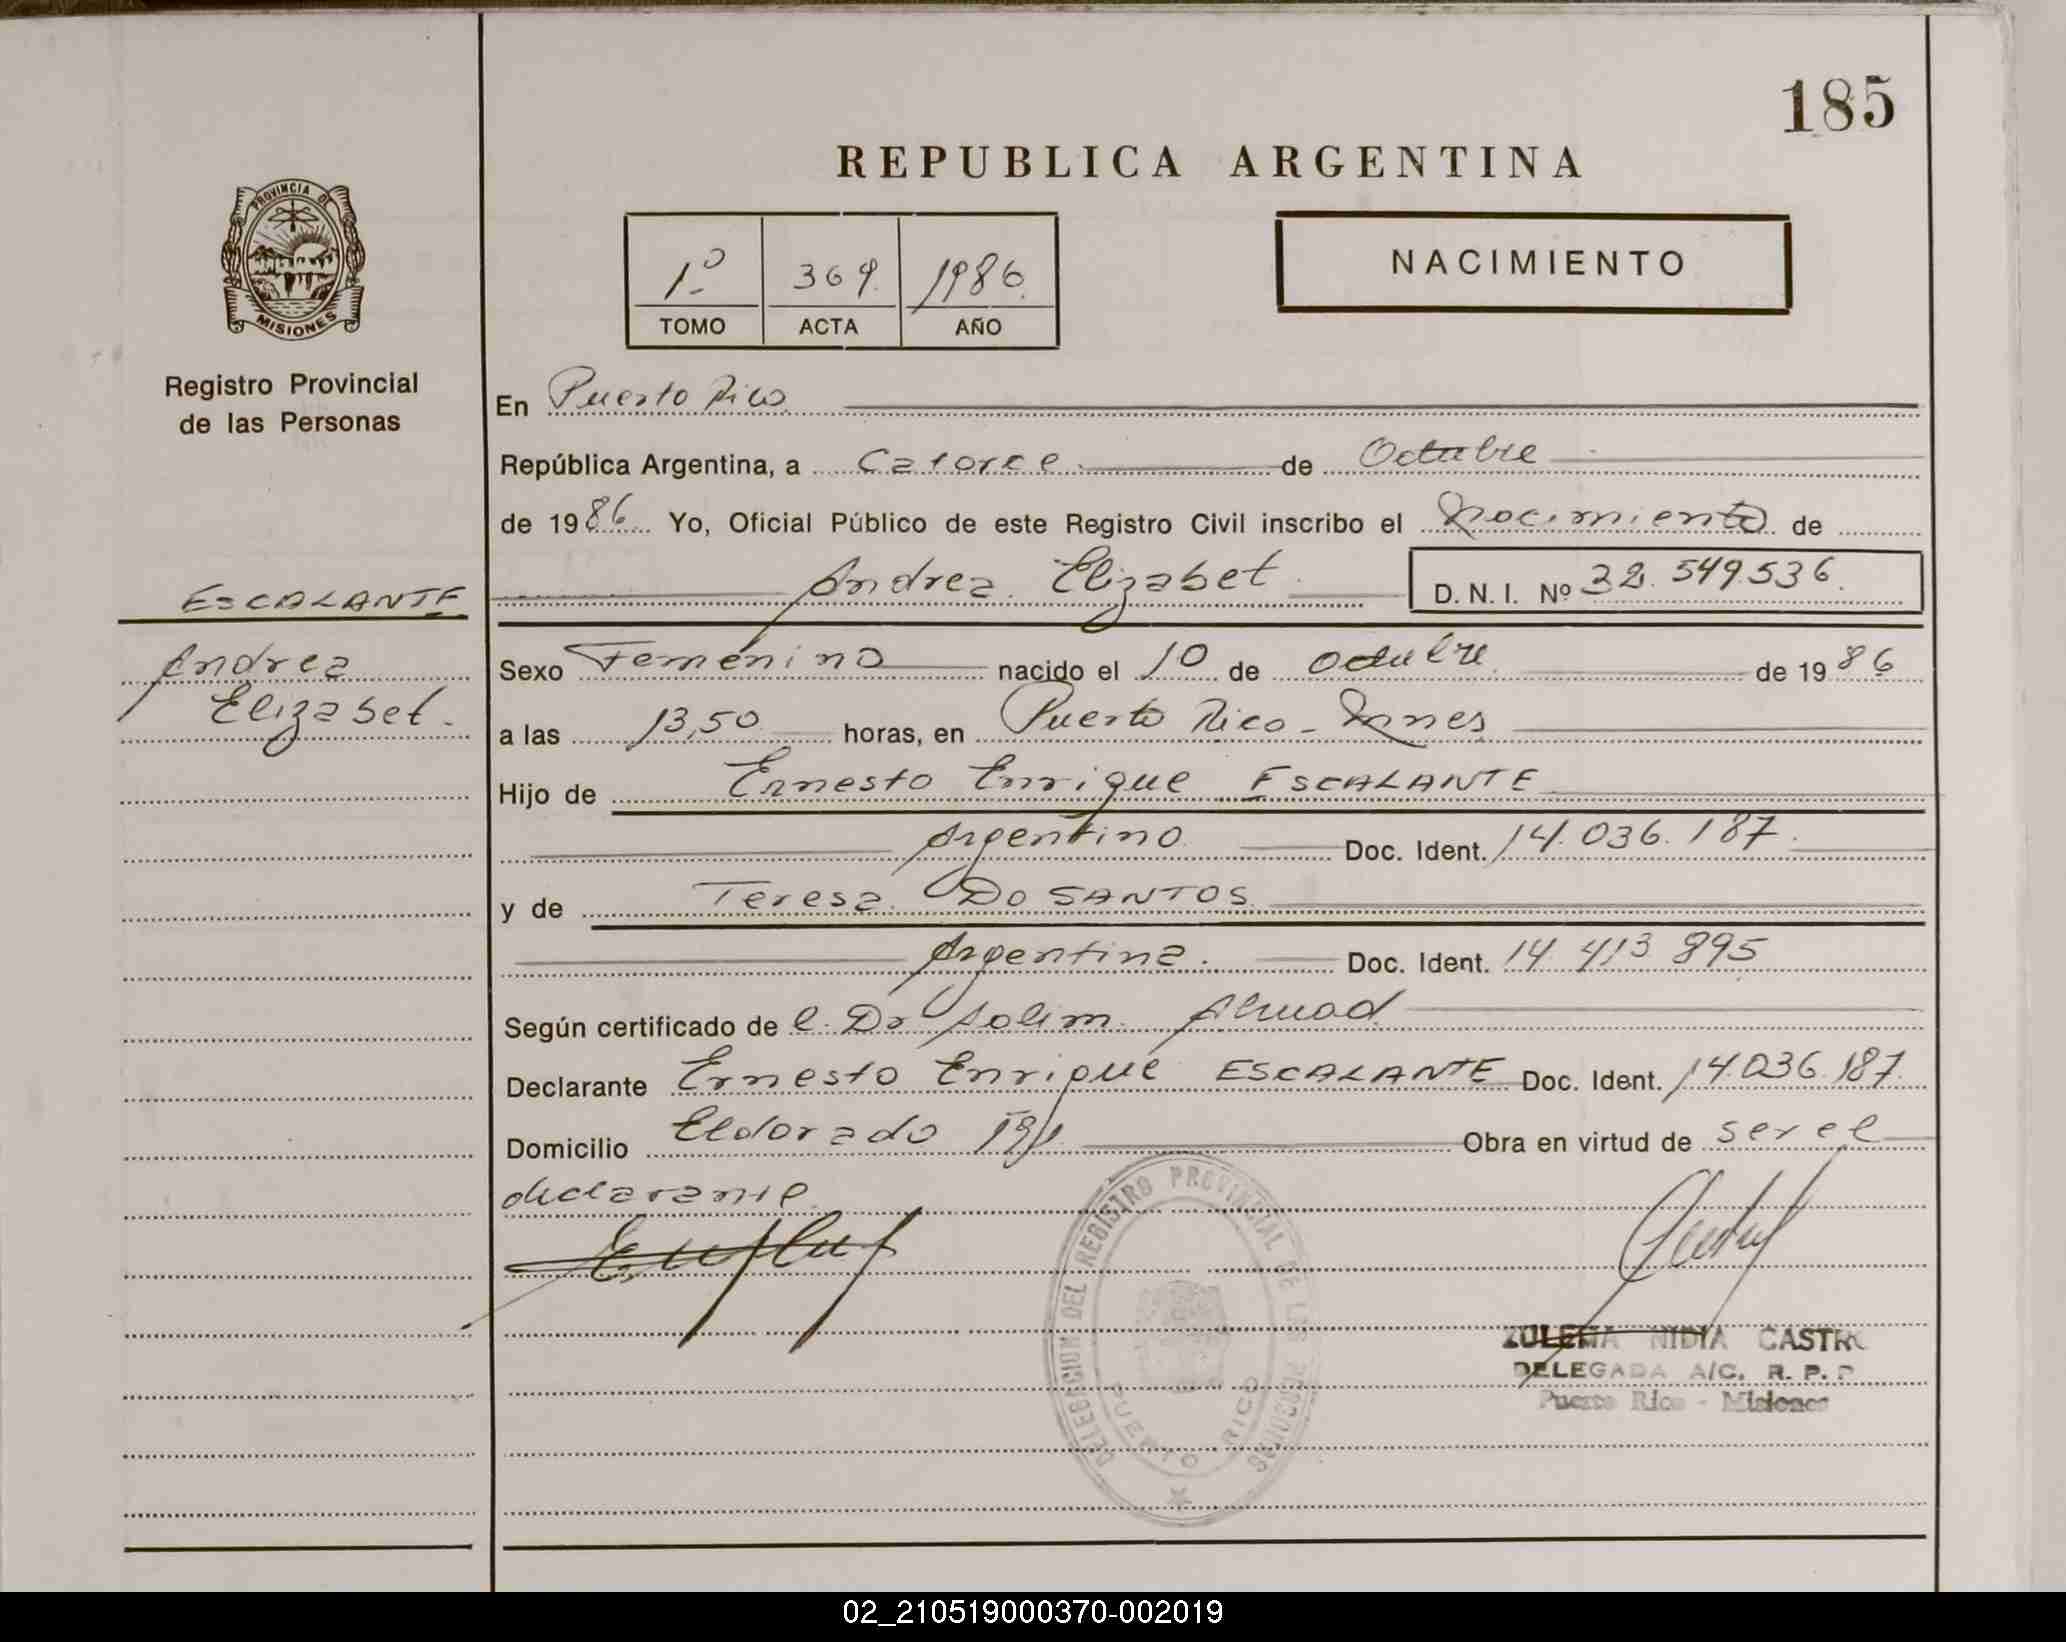 185
REPUBLICA ARGENTINA
PROVINCIA DE
MISIONES
1º 369 1986
TOMO ACTA AÑO
NACIMIENTO
Registro Provincial
de las Personas
En Puerto Rico
República Argentina, a Catorce de Octubre
de 1986 Yo, Oficial Público de este Registro Civil inscribo el Nacimiento de
ESCALANTE
Andrea Elizabet D. N. I. Nº 32.549.536
Andrea
Elizabet.
Sexo Femenino nacido el 10 de octubre de 1986
a las 13,50 horas, en Puerto Rico - Mnes
Hijo de Ernesto Enrique ESCALANTE
Argentino Doc. Ident. 14.036.187.
y de Teresa DO SANTOS
Argentina. Doc. Ident. 14 413 895
Según certificado de l. Dr
Declarante Ernesto Enrique ESCALANTE Doc. Ident. 14.036.187
Domicilio Eldorado Obra en virtud de ser el
declarante.
DELEGACION DEL REGISTRO PROVINCIAL DE LAS PERSONAS
PUERTO RICO
ZULEMA NIDIA CASTRO
DELEGADA A/C. R. P. P.
Puerto Rico - Misiones
02_210519000370-002019